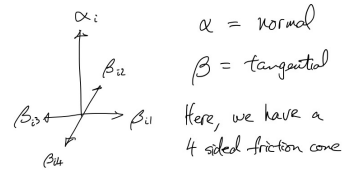 α i
β i2
β i3
β i1
β i4
α = normal
β = tangential
Here, we have a
4 sided friction cone